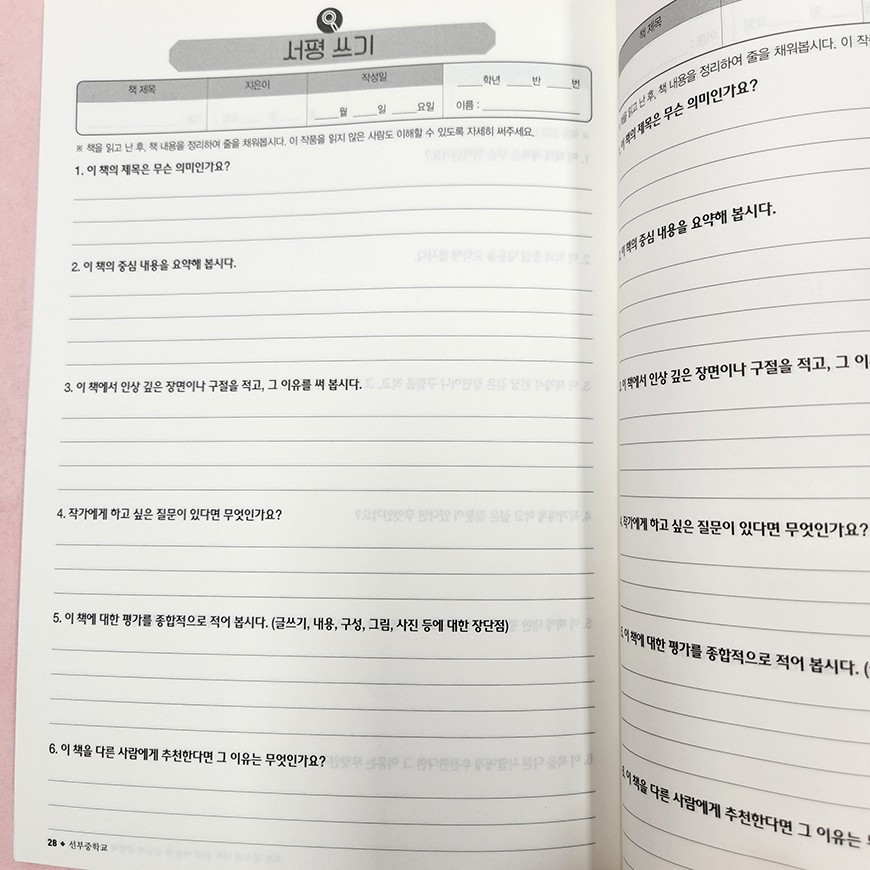 서평 쓰기
책 제목 지은이 작성일 ____학년 ____반 ____번
____월 ____일 ____요일 이름 :
※ 책을 읽고 난 후, 책 내용을 정리하여 줄을 채워봅시다. 이 작품을 읽지 않은 사람도 이해할 수 있도록 자세히 써주세요.
1. 이 책의 제목은 무슨 의미인가요?
2. 이 책의 중심 내용을 요약해 봅시다.
3. 이 책에서 인상 깊은 장면이나 구절을 적고, 그 이유를 써 봅시다.
4. 작가에게 하고 싶은 질문이 있다면 무엇인가요?
5. 이 책에 대한 평가를 종합적으로 적어 봅시다. (글쓰기, 내용, 구성, 그림, 사진 등에 대한 장단점)
6. 이 책을 다른 사람에게 추천한다면 그 이유는 무엇인가요?
28 ◆ 선부중학교
책 제목
읽고 난 후, 책 내용을 정리하여 줄을 채워봅시다. 이 작
이 책의 제목은 무슨 의미인가요?
이 책의 중심 내용을 요약해 봅시다.
이 책에서 인상 깊은 장면이나 구절을 적고, 그 이
4. 작가에게 하고 싶은 질문이 있다면 무엇인가요?
5. 이 책에 대한 평가를 종합적으로 적어 봅시다. (
이 책을 다른 사람에게 추천한다면 그 이유는